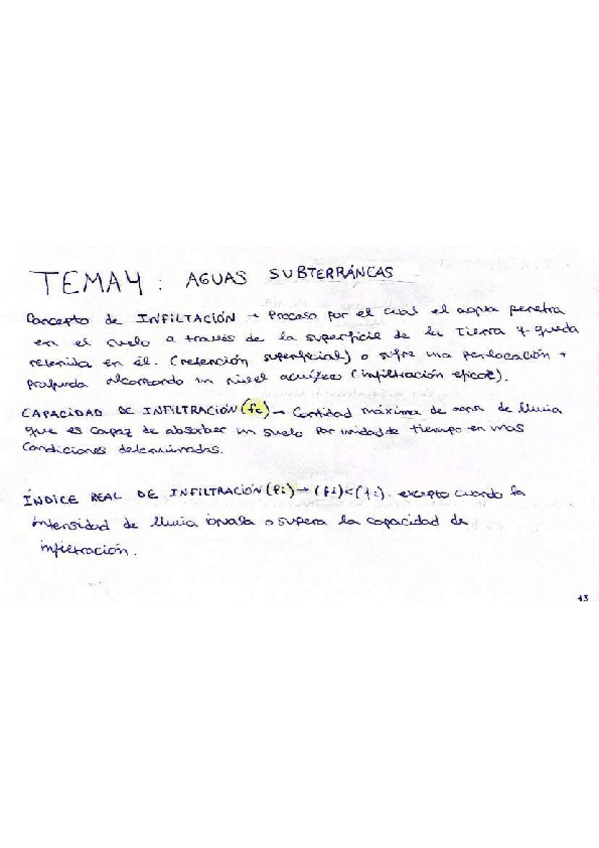 TEMA 4 : AGUAS SUBTERRÁNEAS
Concepto de INFILTACIÓN → Proceso por el cual el agua penetra
en el suelo a través de la superficie de la Tierra y queda
retenida en él. (retención superficial) o sufre una percolación +
profunda alcanzando un nivel acuífero (infiltración eficaz).
CAPACIDAD DE INFILTRACIÓN (fc) → Cantidad máxima de agua de lluvia
que es capaz de absorber un suelo por unidad de tiempo en unas
condiciones determinadas.
ÍNDICE REAL DE INFILTRACIÓN (fi) → (fi)<(fc). excepto cuando la
intensidad de lluvia iguala o supera la capacidad de
infiltración.
43